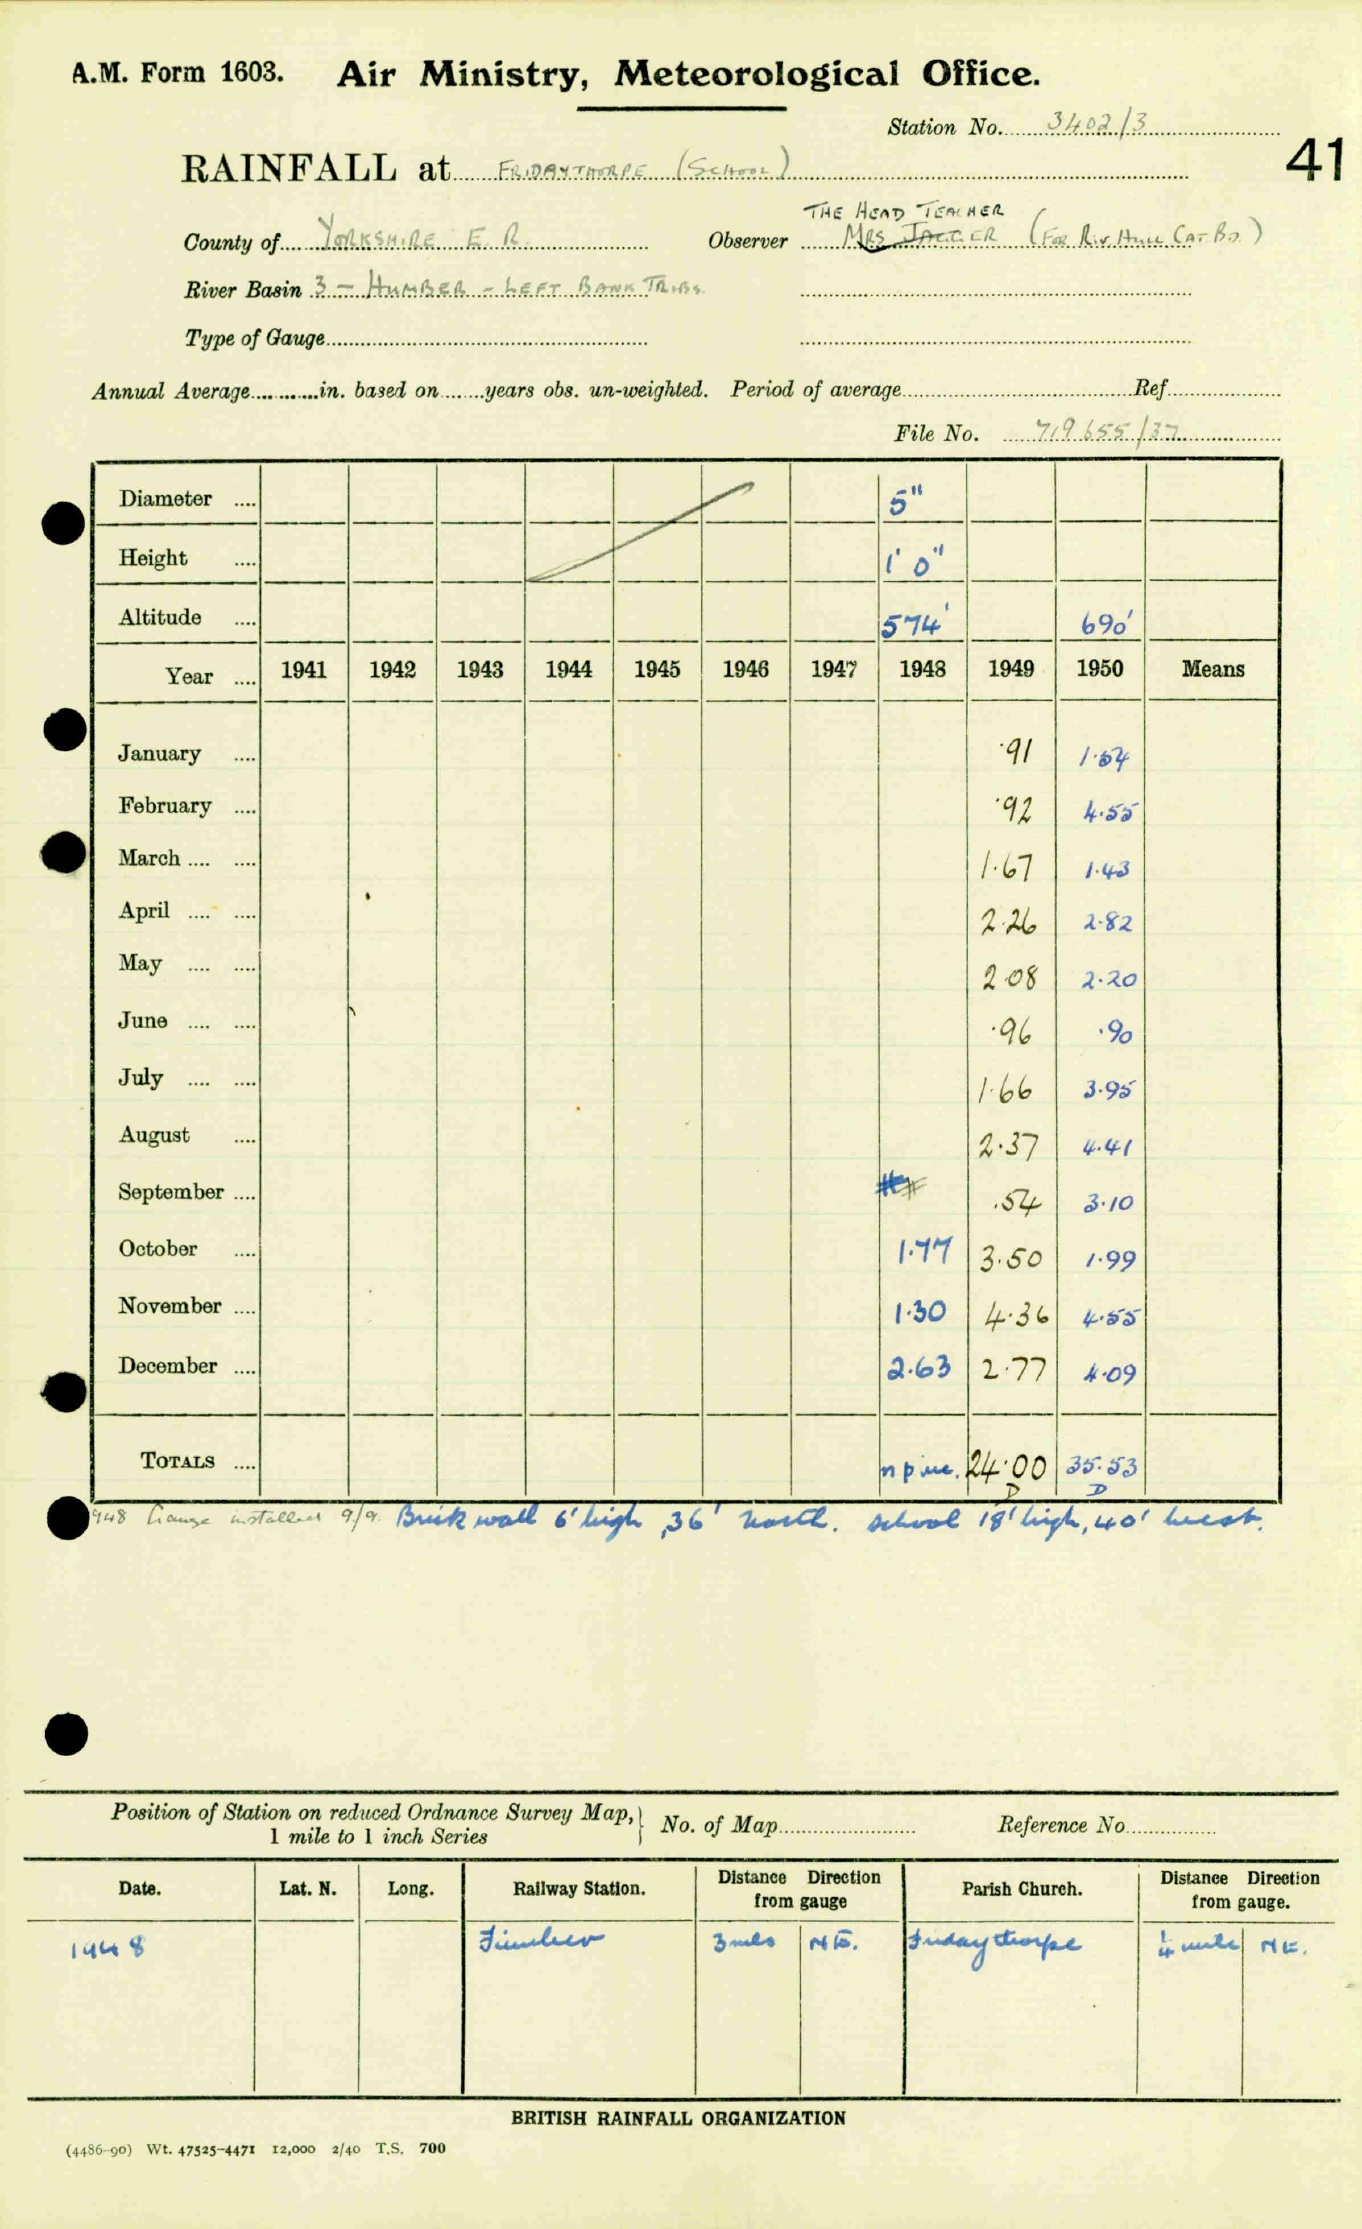 A.M. Form 1603. Air Ministry, Meteorological Office.
Station No. 3402/3
41
RAINFALL at FRIDAYTHORPE (SCHOOL)
THE HEAD TEACHER
County of YORKSHIRE E.R. Observer MRS JAGGER (FOR RIV. HULL CAT. BD.)
River Basin 3 - HUMBER - LEFT BANK TRIBS.
Type of Gauge
Annual Average in. based on years obs. un-weighted. Period of average Ref
File No. 719655/37
Diameter 5"
Height 1' 0"
Altitude 574' 690'
Year 1941 1942 1943 1944 1945 1946 1947 1948 1949 1950 Means
January ·91 1·54
February ·92 4·55
March 1·67 1·43
April 2·26 2·82
May 2·08 2·20
June ·96 ·90
July 1·66 3·95
August 2·37 4·41
September ·54 3·10
October 1·77 3·50 1·99
November 1·30 4·36 4·55
December 2·63 2·77 4·09
TOTALS 24·00 35·53
D D
1948 Gauge installed 9/9. Brick wall 6' high, 36' North. School 18' high, 40' West.
Position of Station on reduced Ordnance Survey Map, } No. of Map Reference No
1 mile to 1 inch Series
Date. Lat. N. Long. Railway Station. Distance Direction from gauge Parish Church. Distance Direction from gauge.
1948 Fimber 3 mls NE. Fridaythorpe 1/4 mile NE.
BRITISH RAINFALL ORGANIZATION
(4486-90) Wt. 47525-4471 12,000 2/40 T.S. 700